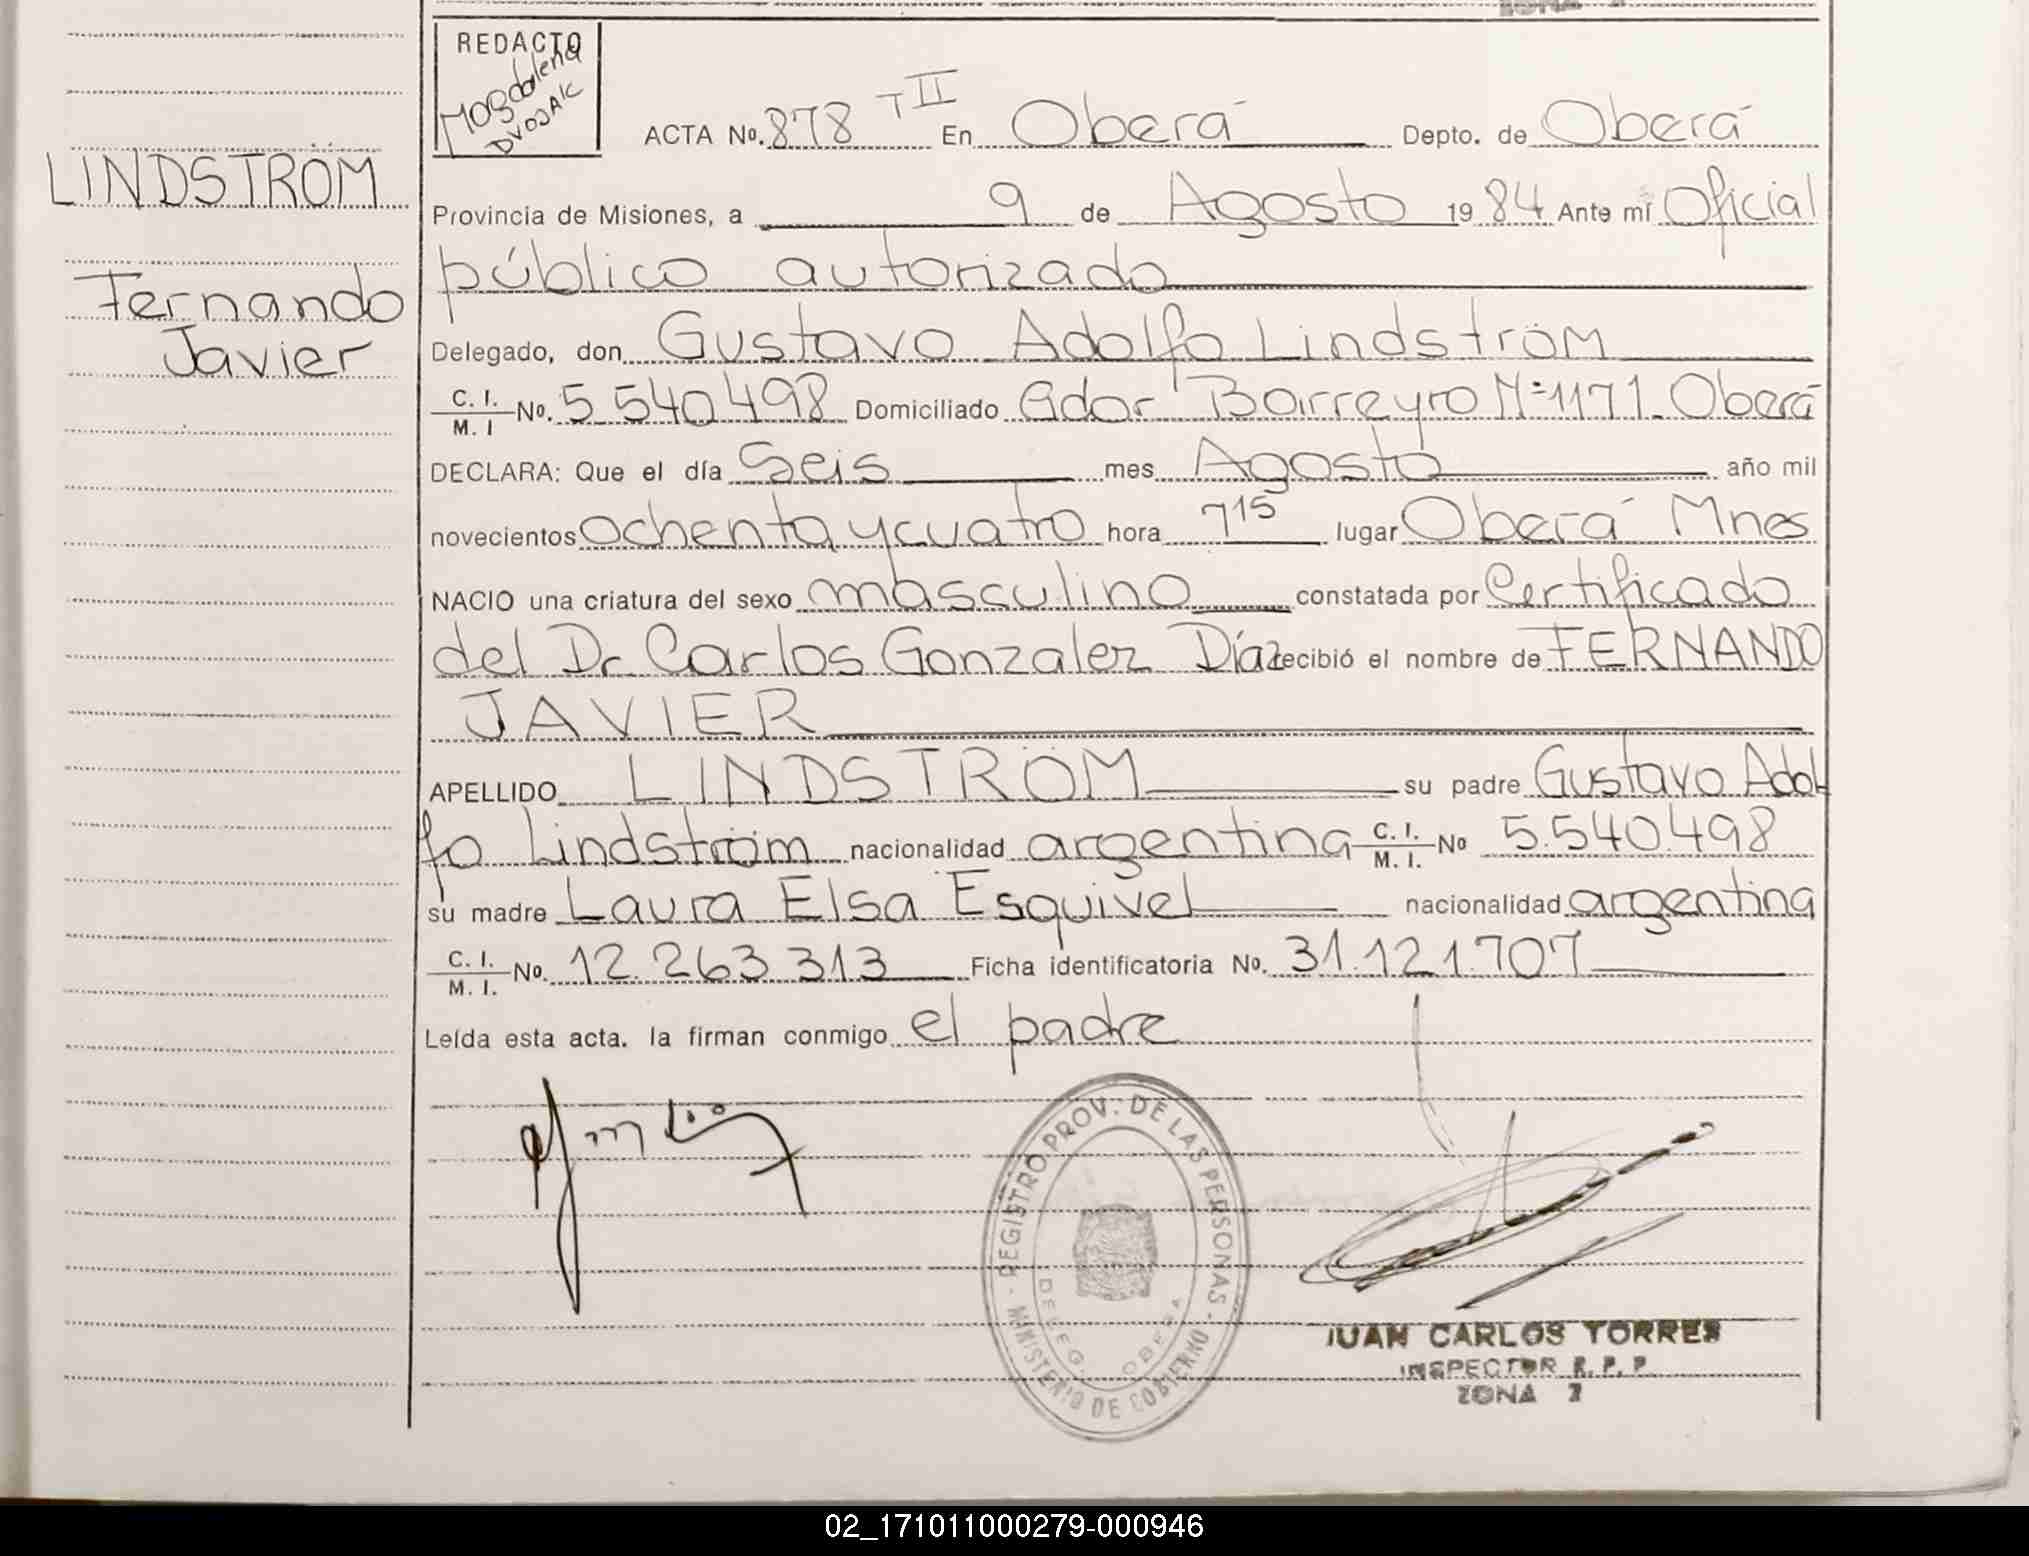 REDACTO
Magdalena
DVOJAK
ACTA No. 878 T II En Oberá Depto. de Oberá
LINDSTRÖM
Provincia de Misiones, a 9 de Agosto 19 84 Ante mí Oficial
público autorizado
Fernando
Javier
Delegado, don Gustavo Adolfo Lindström
C. I. / M. I No. 5.540.498 Domiciliado Gdor Barreyro Nº 1171 Oberá
DECLARA: Que el día Seis mes Agosto año mil
novecientos ochenta y cuatro hora 7 15 lugar Oberá Mnes
NACIO una criatura del sexo masculino constatada por Certificado
del Dr. Carlos Gonzalez Díaz recibió el nombre de FERNANDO
JAVIER
APELLIDO LINDSTRÖM su padre Gustavo Adol
fo Lindström nacionalidad argentina C. I. / M. I. No 5.540.498
su madre Laura Elsa Esquivel nacionalidad argentina
C. I. / M. I. No. 12.263.313 Ficha identificatoria No. 31.121.707
Leída esta acta. la firman conmigo el padre
REGISTRO PROV. DE LAS PERSONAS - MINISTERIO DE GOBIERNO -
DELEG. OBERA
JUAN CARLOS TORRES
INSPECTOR R. P. P.
ZONA 2
02_171011000279-000946